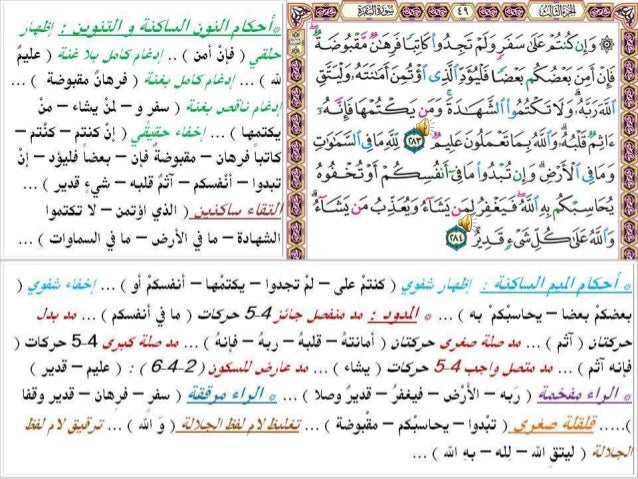 الجزء الثالث ٤٩ سورة البقرة
۞ وَإِن كُنتُمْ عَلَىٰ سَفَرٍ وَلَمْ تَجِدُوا۟ كَاتِبًا فَرِهَـٰنٌ مَّقْبُوضَةٌ
فَإِنْ أَمِنَ بَعْضُكُم بَعْضًا فَلْيُؤَدِّ ٱلَّذِى ٱؤْتُمِنَ أَمَـٰنَتَهُۥ وَلْيَتَّقِ
ٱللَّهَ رَبَّهُۥ وَلَا تَكْتُمُوا۟ ٱلشَّهَـٰدَةَ وَمَن يَكْتُمْهَا فَإِنَّهُۥٓ
ءَاثِمٌ قَلْبُهُۥ وَٱللَّهُ بِمَا تَعْمَلُونَ عَلِيمٌ ٢٨٣ لِّلَّهِ مَا فِى ٱلسَّمَـٰوَٰتِ
وَمَا فِى ٱلْأَرْضِ وَإِن تُبْدُوا۟ مَا فِىٓ أَنفُسِكُمْ أَوْ تُخْفُوهُ
يُحَاسِبْكُم بِهِ ٱللَّهُ فَيَغْفِرُ لِمَن يَشَآءُ وَيُعَذِّبُ مَن يَشَآءُ
وَٱللَّهُ عَلَىٰ كُلِّ شَىْءٍ قَدِيرٌ ٢٨٤
*أحكام النون الساكنة و التنوين : إظهار
حلقي ( فإنْ أمن ) .. إدغام كامل بلا غنة ( عليمٌ
لله ) ... إدغام كامل بغنة ( فرهانٌ مقبوضة ) ...
إدغام ناقص بغنة ( سفرٍ و – لمنْ يشاء – منْ
يكتمها ) ... إخفاء حقيقي ( إنْ كنتم – كنْتم –
كاتباً فرهان – مقبوضةٌ فإن – بعضاً فليؤد – إنْ
تبدوا – أنْفسكم – آثمٌ قلبه – شيءٍ قدير ) ...
التقاء ساكنين ( الذي اؤتمن – لا تكتموا
الشهادة – ما في الأرض – ما في السماوات ) ...
* أحكام الميم الساكنة : إظهار شفوي ( كنتمْ على – لمْ تجدوا – يكتمْها – أنفسكمْ أو ) ... إخفاء شفوي (
بعضكمْ بعضا – يحاسبْكمْ به ) ... * المدود : مد منفصل جائز 4-5 حركات ( ما في أنفسكم ) ... مد بدل
حركتان ( آثم ) ... مد صلة صغرى حركتان ( أمانتهُ – قلبهُ – ربهُ – فإنهُ ) ... مد صلة كبرى 4-5 حركات (
فإنه آثم ) ... مد متصل واجب 4-5 حركات ( يشاء ) ... مد عارض للسكون ( 2-4-6 ) : ( عليم – قدير )
* الراء مفخمة ( رَبه – الأرْض – فيغفرُ – قديرٌ وصلا ) ... * الراء مرققة ( سفرٍ – فرِهان – قدير وقفا
)..... قلقلة صغرى ( تبْدوا – يحاسبْكم – مقْبوضة ) ... تغليظ لام لفظ الجلالة ( وَ الله ) ... ترقيق لام لفظ
الجلالة ( ليتقِ الله – لِله – بهِ الله ) ...